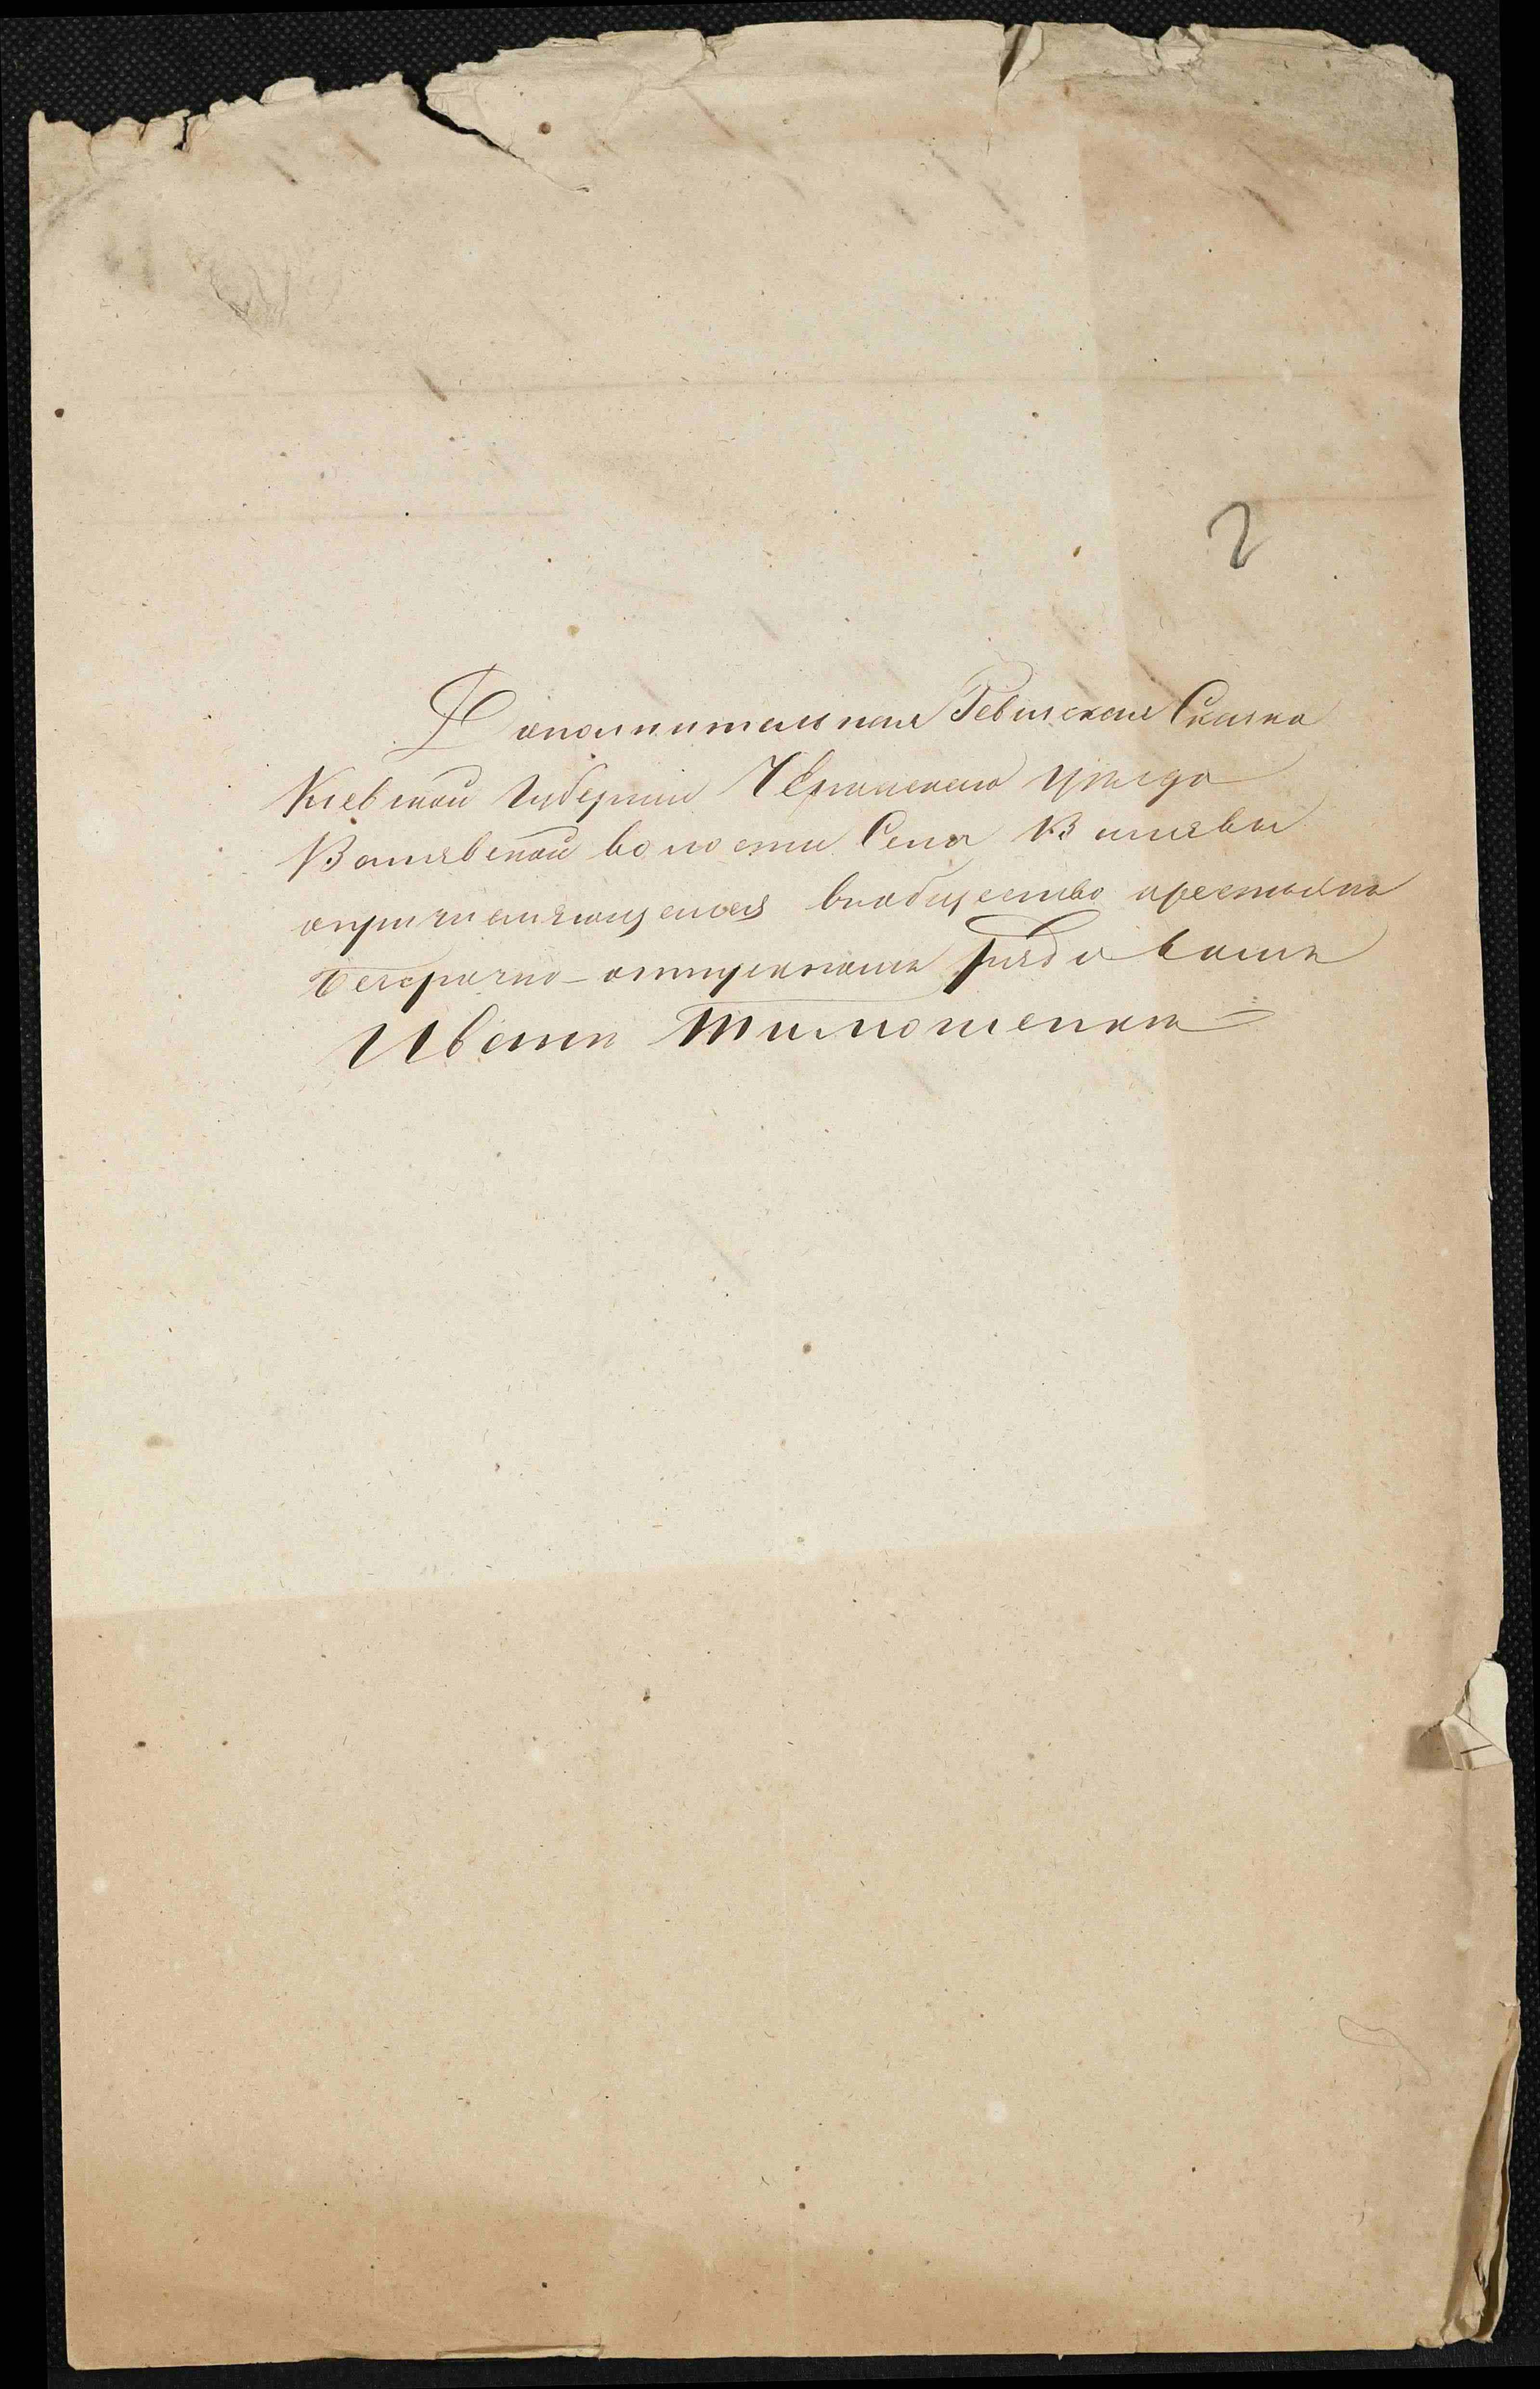 2
Дополнительная Ревизская Сказка
Киевской Губернии Черкаскаго уезда
Валявской волости Села Валявы
опричисляющемся вообщество крестьянъ
безсрочно-отпускномъ рядовомъ
Иванѣ Тимошенкѣ